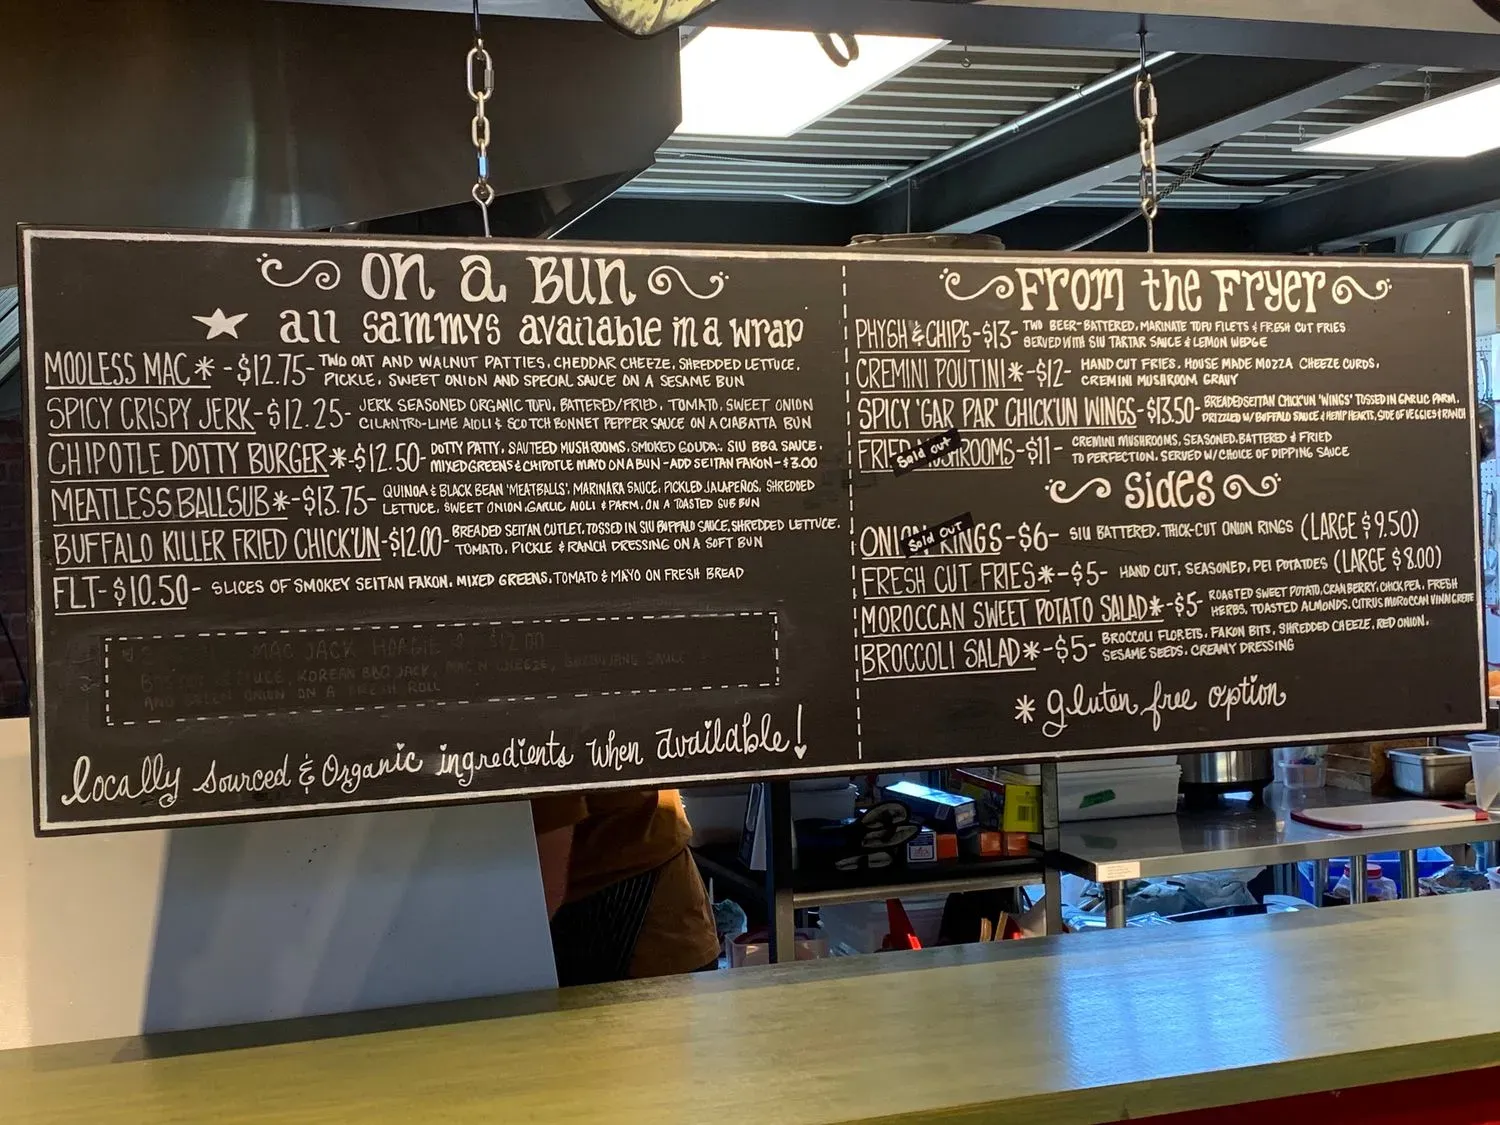 On a Bun
★ all sammys available in a wrap
MOOLESS MAC * - $12.75 - TWO OAT AND WALNUT PATTIES, CHEDDAR CHEEZE, SHREDDED LETTUCE,
PICKLE, SWEET ONION AND SPECIAL SAUCE ON A SESAME BUN
SPICY CRISPY JERK - $12.25 - JERK SEASONED ORGANIC TOFU, BATTERED/FRIED, TOMATO, SWEET ONION
CILANTRO-LIME AIOLI & SCOTCH BONNET PEPPER SAUCE ON A CIABATTA BUN
CHIPOTLE DOTTY BURGER * - $12.50 - DOTTY PATTY, SAUTEED MUSHROOMS, SMOKED GOUDA, SIU BBQ SAUCE,
MIXED GREENS & CHIPOTLE MAYO ON A BUN - ADD SEITAN FAKON - $3.00
MEATLESS BALLSUB * - $13.75 - QUINOA & BLACK BEAN 'MEATBALLS', MARINARA SAUCE, PICKLED JALAPEÑOS, SHREDDED
LETTUCE, SWEET ONION, GARLIC AIOLI & PARM, ON A TOASTED SUB BUN
BUFFALO KILLER FRIED CHICK'UN - $12.00 - BREADED SEITAN CUTLET, TOSSED IN SIU BUFFALO SAUCE, SHREDDED LETTUCE,
TOMATO, PICKLE & RANCH DRESSING ON A SOFT BUN
FLT - $10.50 - SLICES OF SMOKEY SEITAN FAKON, MIXED GREENS, TOMATO & MAYO ON FRESH BREAD
MAC JACK HOAGIE $12.00
KOREAN BBQ JACK, MAC N CHEEZE,
GREEN ONION ON A FRESH ROLL
locally sourced & Organic ingredients when available!
From the Fryer
PHYSH & CHIPS - $13 - TWO BEER-BATTERED, MARINATE TOFU FILETS & FRESH CUT FRIES
SERVED WITH SIU TARTAR SAUCE & LEMON WEDGE
CREMINI POUTINI * - $12 - HAND CUT FRIES, HOUSE MADE MOZZA CHEEZE CURDS,
CREMINI MUSHROOM GRAVY
SPICY 'GAR PAR' CHICK'UN WINGS - $13.50 - BREADED SEITAN CHICK'UN 'WINGS' TOSSED IN GARLIC PARM,
DRIZZLED W/ BUFFALO SAUCE & HEMP HEARTS, SIDE OF VEGGIES & RANCH
FRIED MUSHROOMS - $11 - CREMINI MUSHROOMS, SEASONED, BATTERED & FRIED
Sold out
TO PERFECTION. SERVED W/ CHOICE OF DIPPING SAUCE
Sides
ONION RINGS - $6 - SIU BATTERED, THICK-CUT ONION RINGS (LARGE $9.50)
Sold out
FRESH CUT FRIES * - $5 - HAND CUT, SEASONED, PEI POTATOES (LARGE $8.00)
MOROCCAN SWEET POTATO SALAD * - $5 - ROASTED SWEET POTATO, CRANBERRY, CHICKPEA, FRESH
HERBS, TOASTED ALMONDS, CITRUS MOROCCAN VINAIGRETTE
BROCCOLI SALAD * - $5 - BROCCOLI FLORETS, FAKON BITS, SHREDDED CHEEZE, RED ONION,
SESAME SEEDS, CREAMY DRESSING
* gluten free option